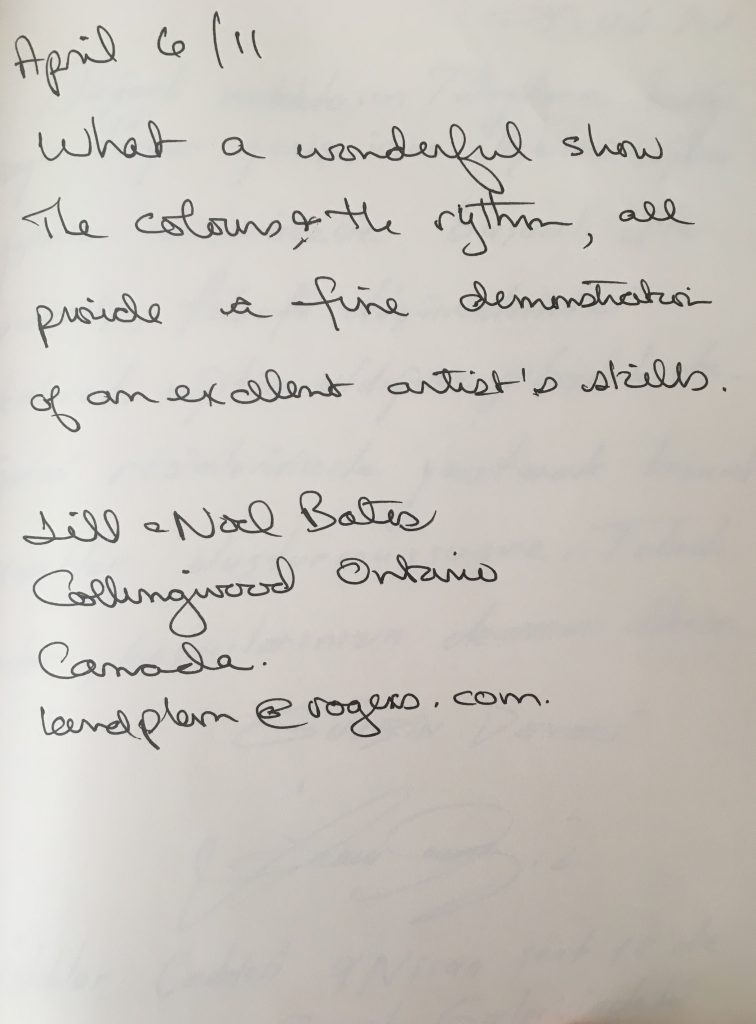 April 6/11
What a wonderful show
The colours & the rythm, all
provide a fine demonstration
of an excellent artist's skills.
Jill & Noel Bates
Collingwood Ontario
Canada.
landplan@rogers.com.